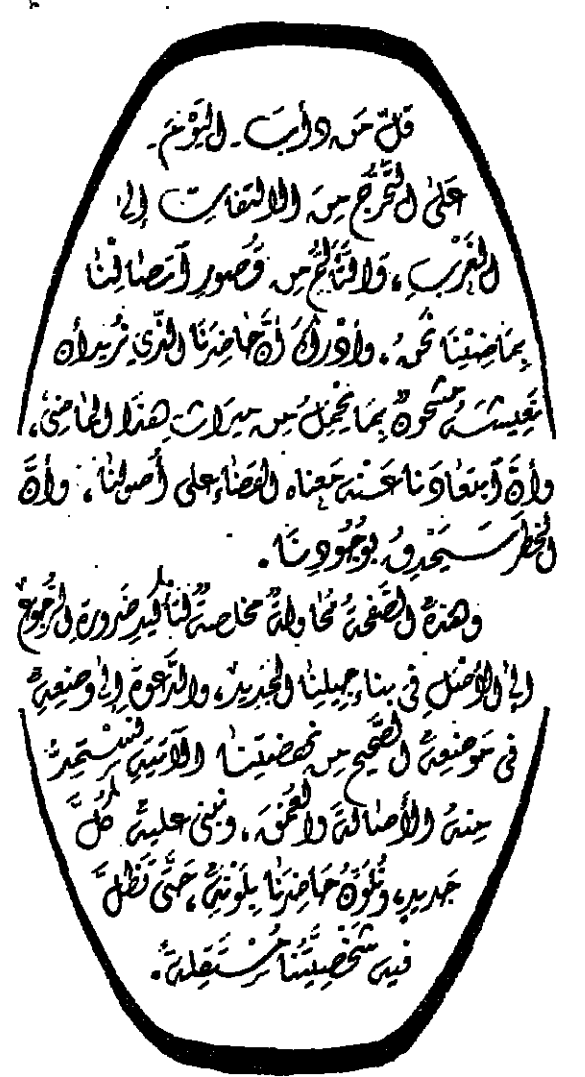 قَلّ مَن دأبَ - اليَوْمَ -
عَلَى التَّحَرُّجِ مِنَ الالتفاتِ إلى
الغَرْبِ، وَالتَّأَلُّمِ مِن قُصورِ اتصَالِنَا
بِمَاضِيْنَا نَحْنُ. وأَدْرَكَ أَنَّ حَاضِرَنَا الَّذِي نُريد أن
نَعيشَهُ مشحونٌ بِمَا يَحْمِلُ مِن ميراثِ هذَا المَاضِي،
وأَنَّ ابتعَادَنا عَنْهُ مَعناه القضَاء على أُصولنَا، وأَنَّ
الخطَر سَيَحْدِقُ بوُجُودِنَا.
وهَذهِ الصَّفحَةُ مُحَاولةٌ مخلصةٌ لتَأكيدِ ضَرورة الرُّجُوعِ
إلى الأَصْلِ في بناءِ جِيلِنَا الجَديد، والدَّعوة إلى وضعِهِ
في مَوضعِهِ الصَّحيح مِن نهضتِنَا الآتيَةِ لنَسْتَمِدَّ
مِنهُ الأَصَالَةَ والعُمْقَ، ونبني عليهِ كُلَّ
جَديدٍ، ونُلَوِّنَ حَاضِرَنَا بِلَوْنِهِ، حَتَّى تَظَلَّ
فيهِ شَخْصِيَّتُنَا مُسْتَقِلَةً.